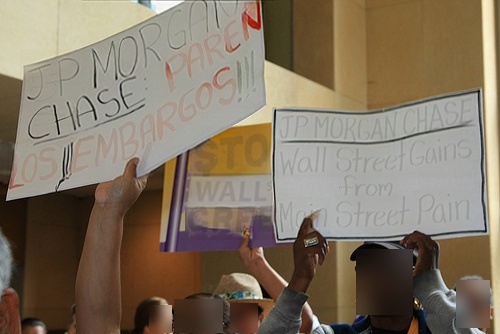 JP MORGAN
CHASE: PAREN
LOS EMBARGOS!!!
!!!
STO
WALL
JP MORGAN CHASE
Wall Street Gains
from
Main Street Pain